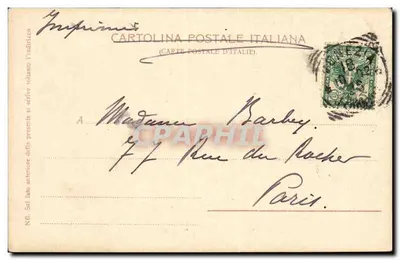 Imprimé
CARTOLINA POSTALE ITALIANA
(CARTE POSTALE D'ITALIE)
VENEZIA
A Madame Barbey
77 Rue du Rocher
Paris.
NB. Sul lato anteriore della presente si scrive soltanto l'indirizzo
CPAPHIL